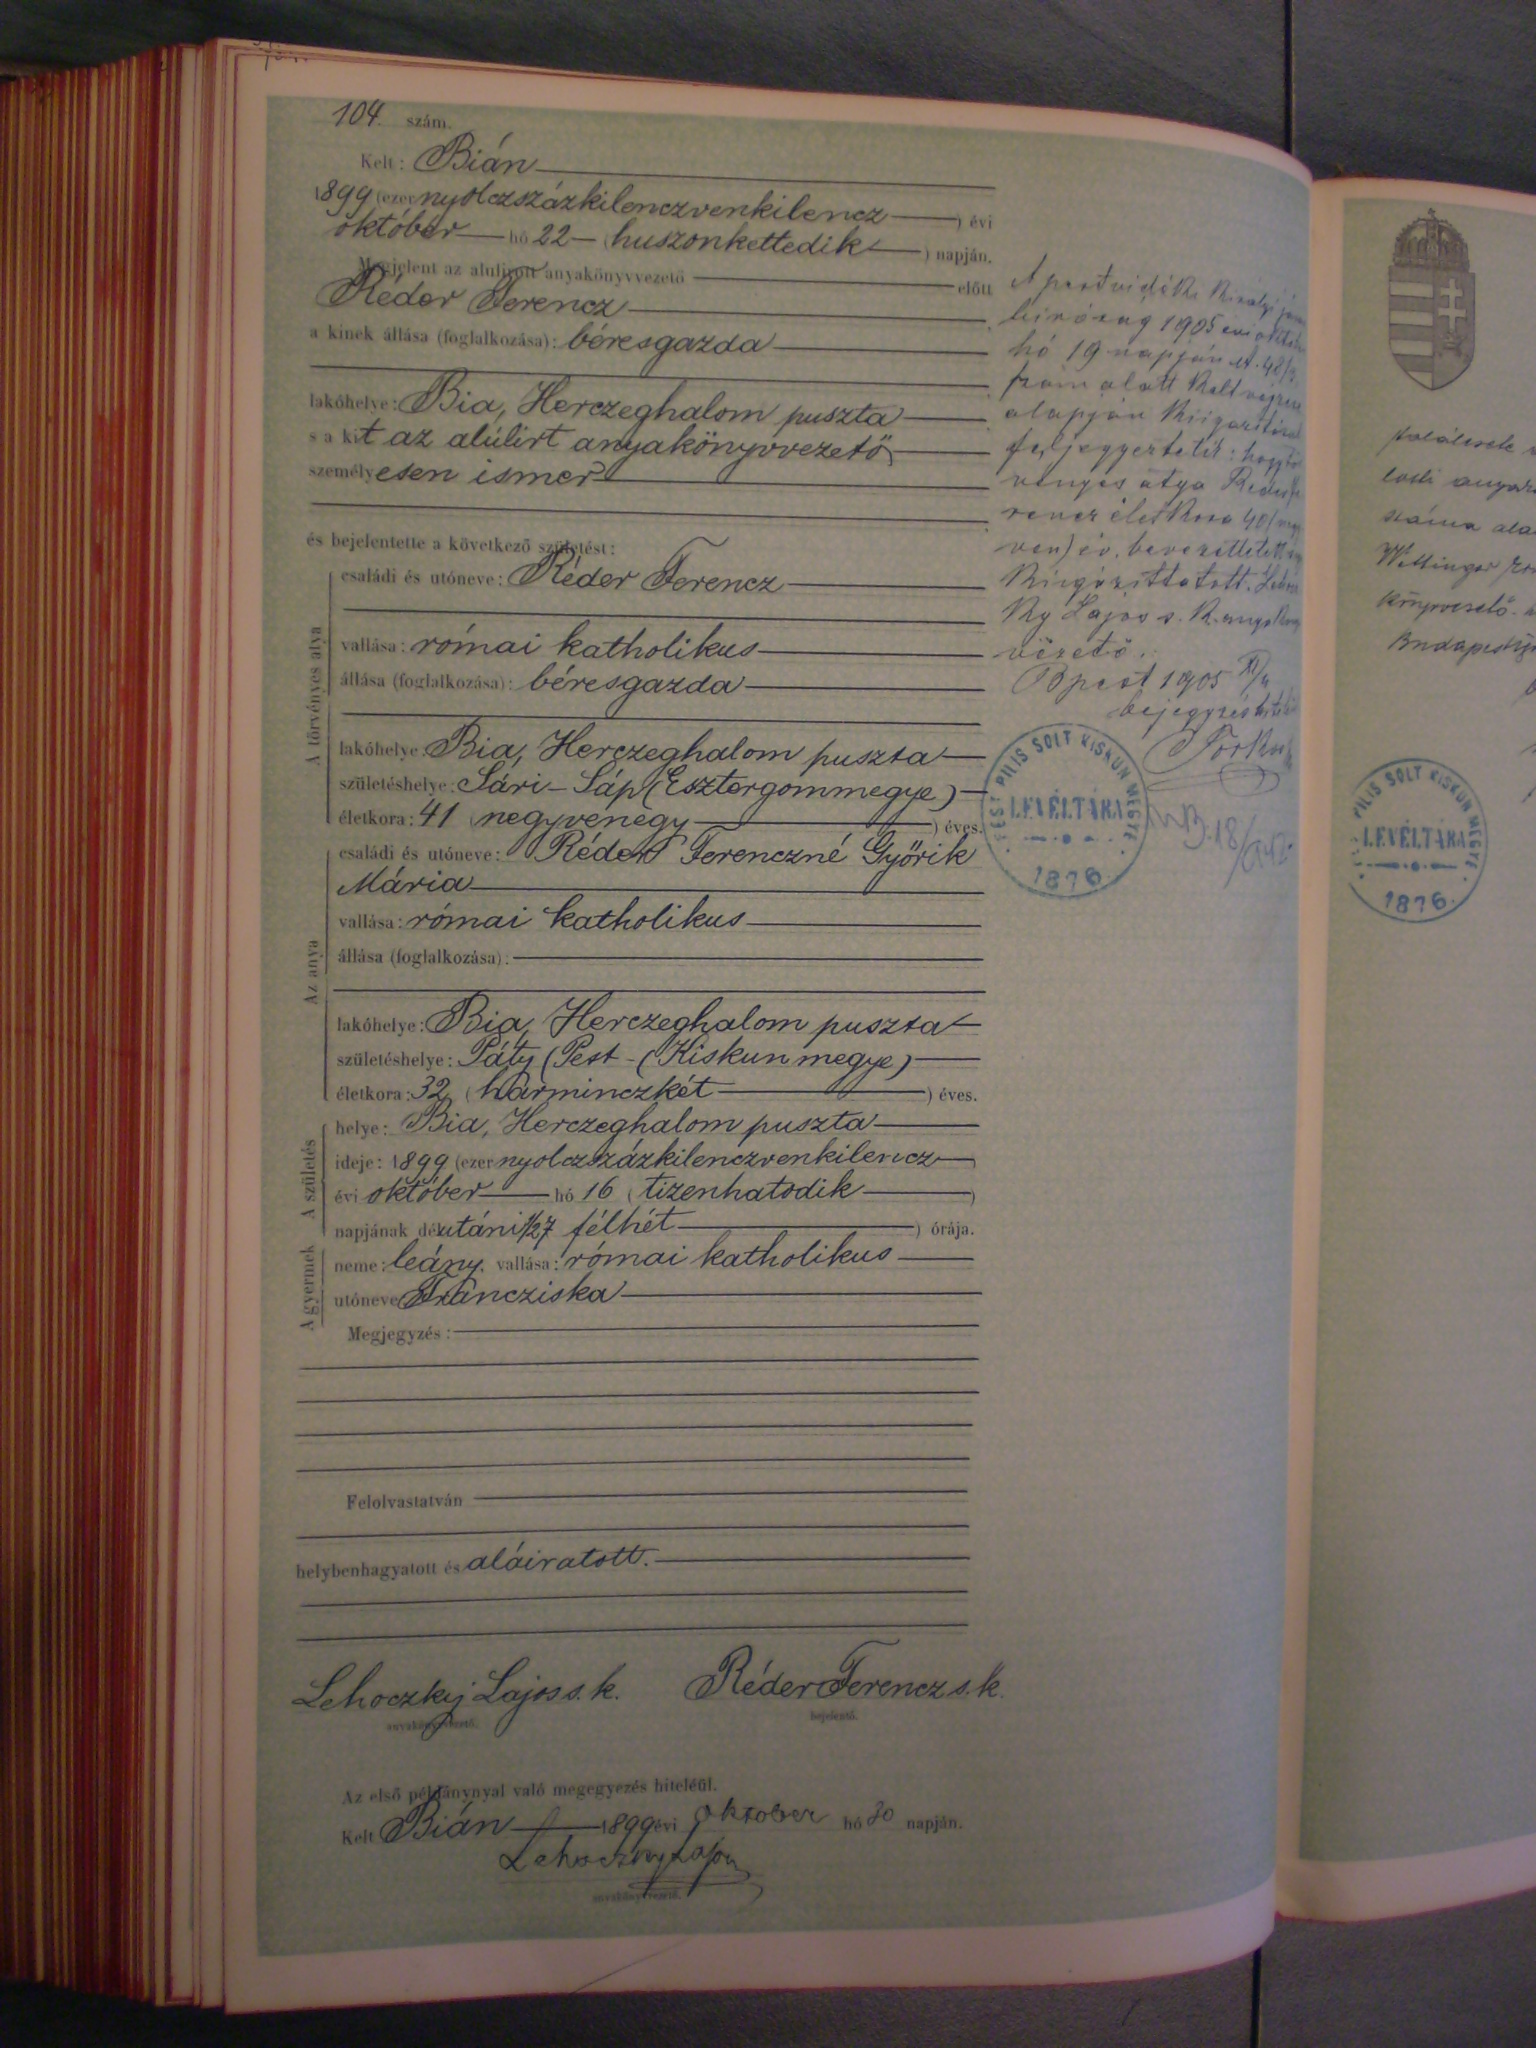 104. szám.
Kelt: Bián
1899 (ezer nyolczszázkilenczvenkilencz ) évi
október hó 22 (huszonkettedik ) napján.
Megjelent az alulirott anyakönyvvezető előtt
Réder Ferencz
a kinek állása (foglalkozása): béresgazda
lakóhelye: Bia, Herczeghalom puszta
s a kit az alúlirt anyakönyvvezető
személyesen ismer
és bejelentette a következő születést:
A törvényes atya
családi és utóneve: Réder Ferencz
vallása: római katholikus
állása (foglalkozása): béresgazda
lakóhelye: Bia, Herczeghalom puszta
születéshelye: Sári-Sáp (Esztergommegye)
életkora: 41 (negyvenegy ) éves.
Az anya
családi és utóneve: Réder Ferenczné Győrik
Mária
vallása: római katholikus
állása (foglalkozása):
lakóhelye: Bia, Herczeghalom puszta
születéshelye: Páty (Pest-(Kiskunmegye)
életkora: 32 (harminczkét ) éves.
A születés
helye: Bia, Herczeghalom puszta
ideje: 1899 (ezer nyolczszázkilenczvenkilencz
évi október hó 16 (tizenhatodik )
napjának délutáni 1/27 félhét ) órája.
A gyermek
neme: leány, vallása: római katholikus
utóneve Francziska
Megjegyzés:
Felolvastatván
helybenhagyatott és aláiratott.
Lehoczky Lajos s. k. Réder Ferencz s. k.
anyakönyvvezető. bejelentő.
Az első példánynyal való megegyezés hiteléül.
Kelt Bián 1899 évi oktober hó 30 napján.
Lehoczky Lajos
anyakönyvvezető.
A pestvidéki királyi
biróság 1905 évi
hó 19 napján
szám alatt kelt
alapján
feljegyeztetik: hogy
vényes atya Réder
rencz életkora 40 (negy
ven) év, bevezettetett
kiigazittatott.
ky Lajos s. k.
vezető.
Bpest 1905 XI/4
PEST PILIS SOLT KISKUN MEGYE
LEVÉLTÁRA
1876.
Budapest
PILIS SOLT KISKUN MEGYE
LEVÉLTÁRA
1876.